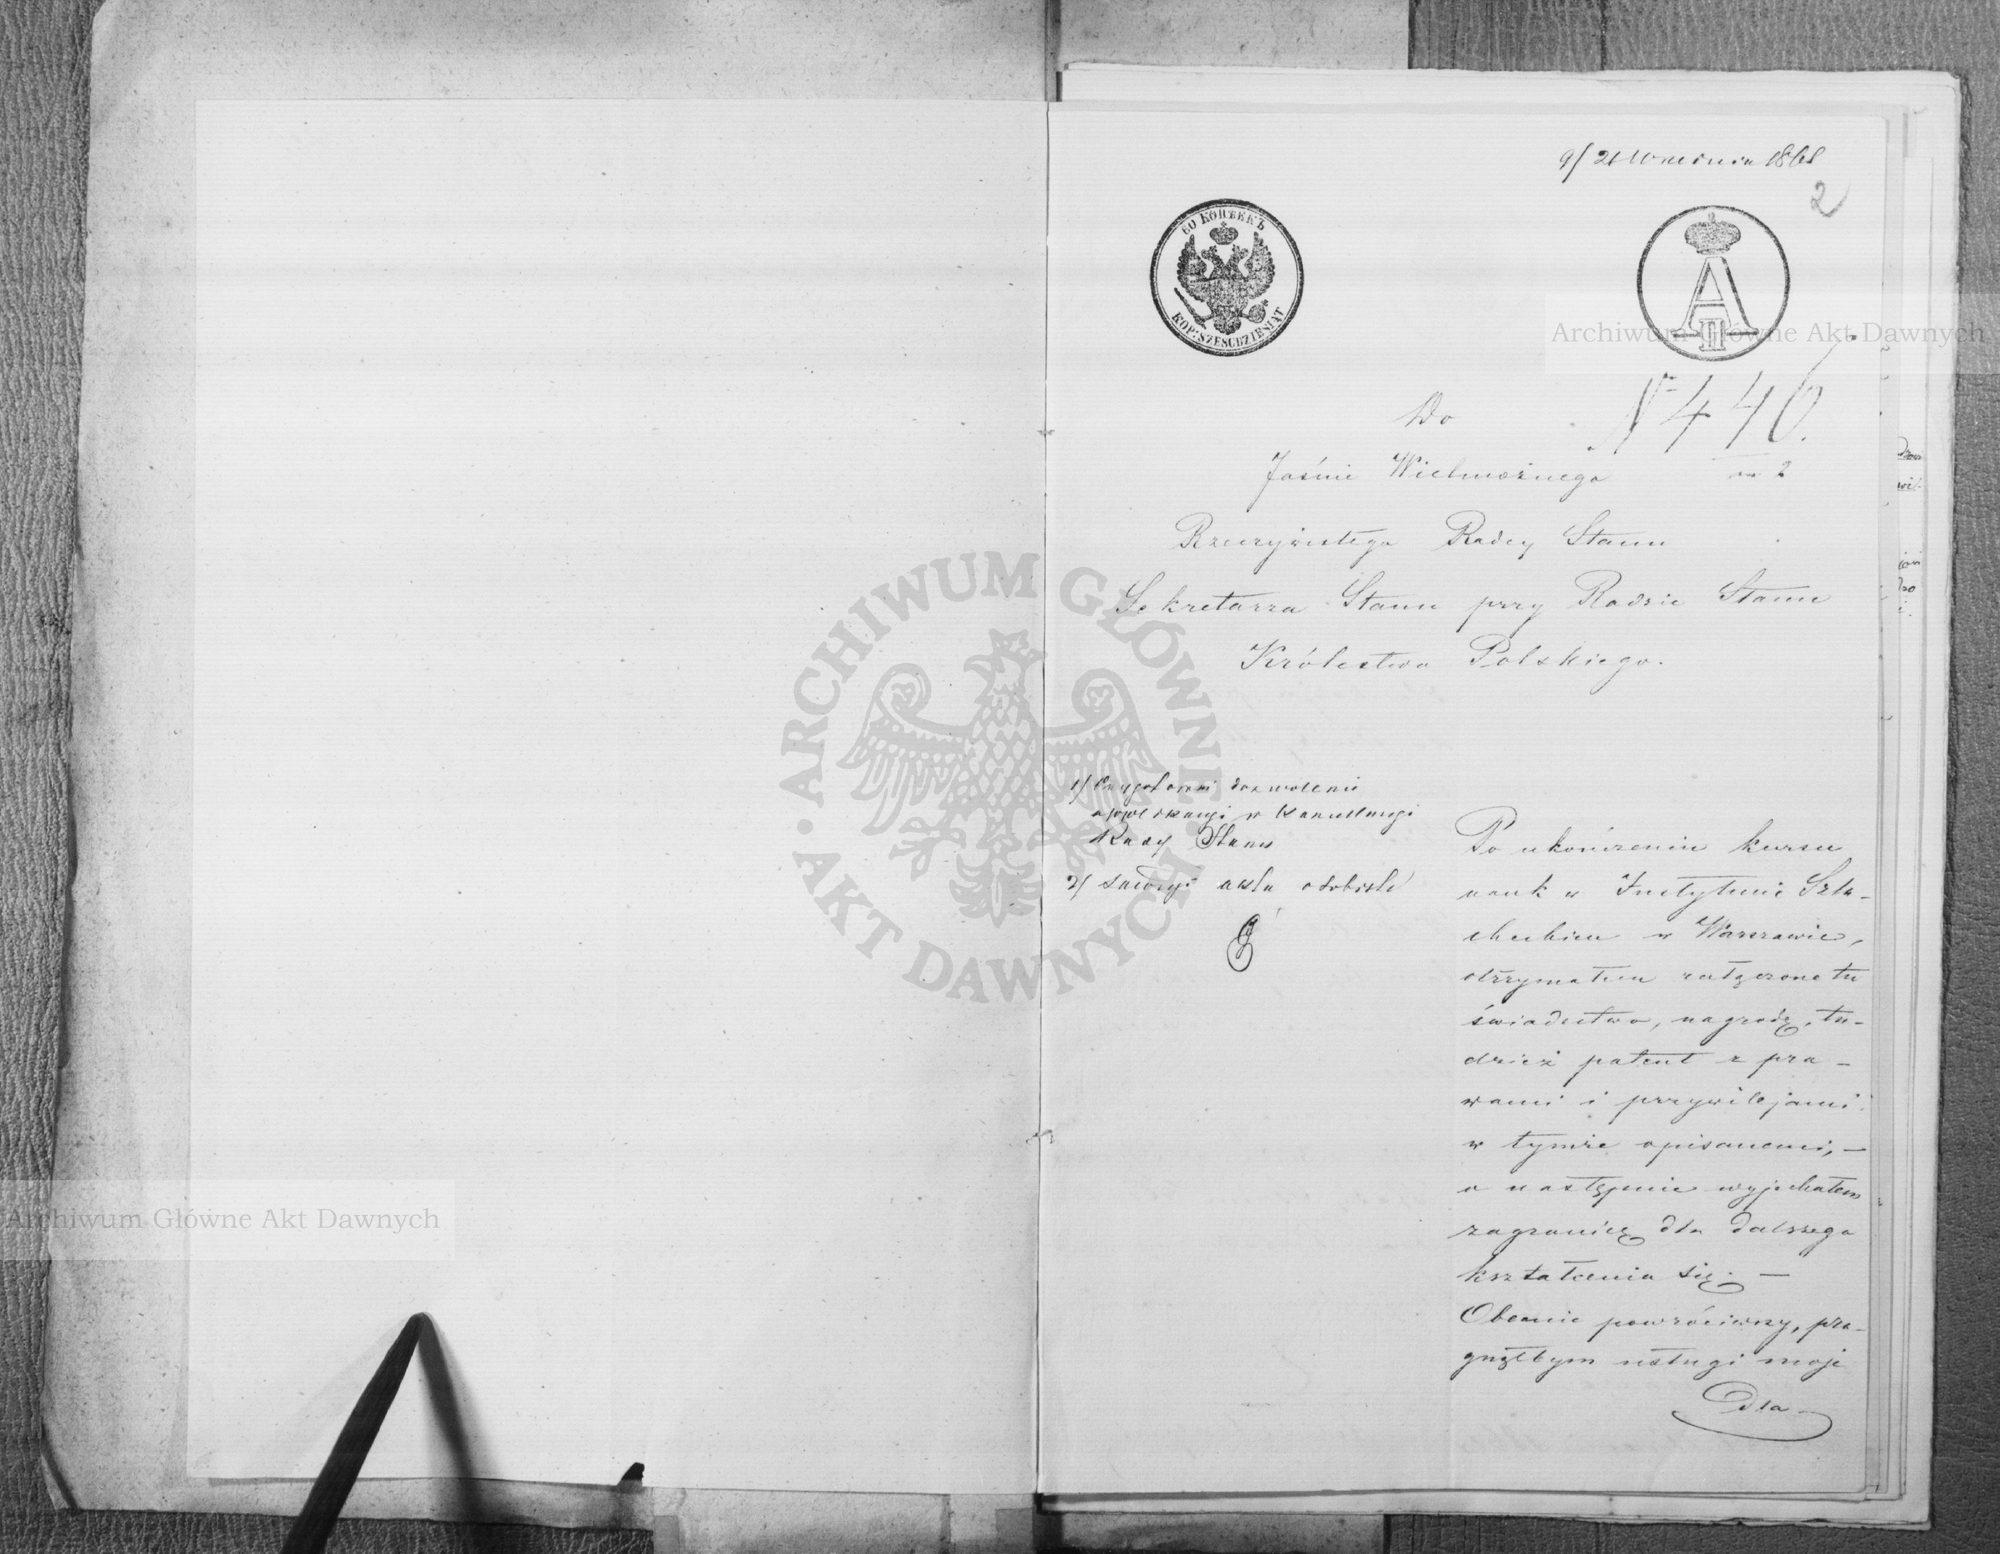 9/21 Września 1861
2
60 КОПѢЕКЪ
KOP: SZEŚĆDZIESIĄT
A II
N 446.
Do
Jaśnie Wielmożnego
Rzeczywistego Radcy Stanu
Sekretarza Stanu przy Radzie Stanu
Królestwa Polskiego.
1/ Przygotować dozwolenie
aplikacyi w Kancellaryi
Rady Stanu
2/ założyć akta osobiste
Po ukończeniu kursu
nauk w Instytucie Szla-
checkim w Warszawie,
otrzymałem załączone tu
świadectwo, nagrodę, tu-
dzież patent z pra-
wami i przywilejami
w tymże opisanemi, —
a następnie wyjechałem
zagranicę dla dalszego
kształcenia się. —
Obecnie powróciwszy, pra-
gnąłbym usługi moje
dla
Archiwum Główne Akt Dawnych
Archiwum Główne Akt Dawnych
ARCHIWUM GŁÓWNE AKT DAWNYCH